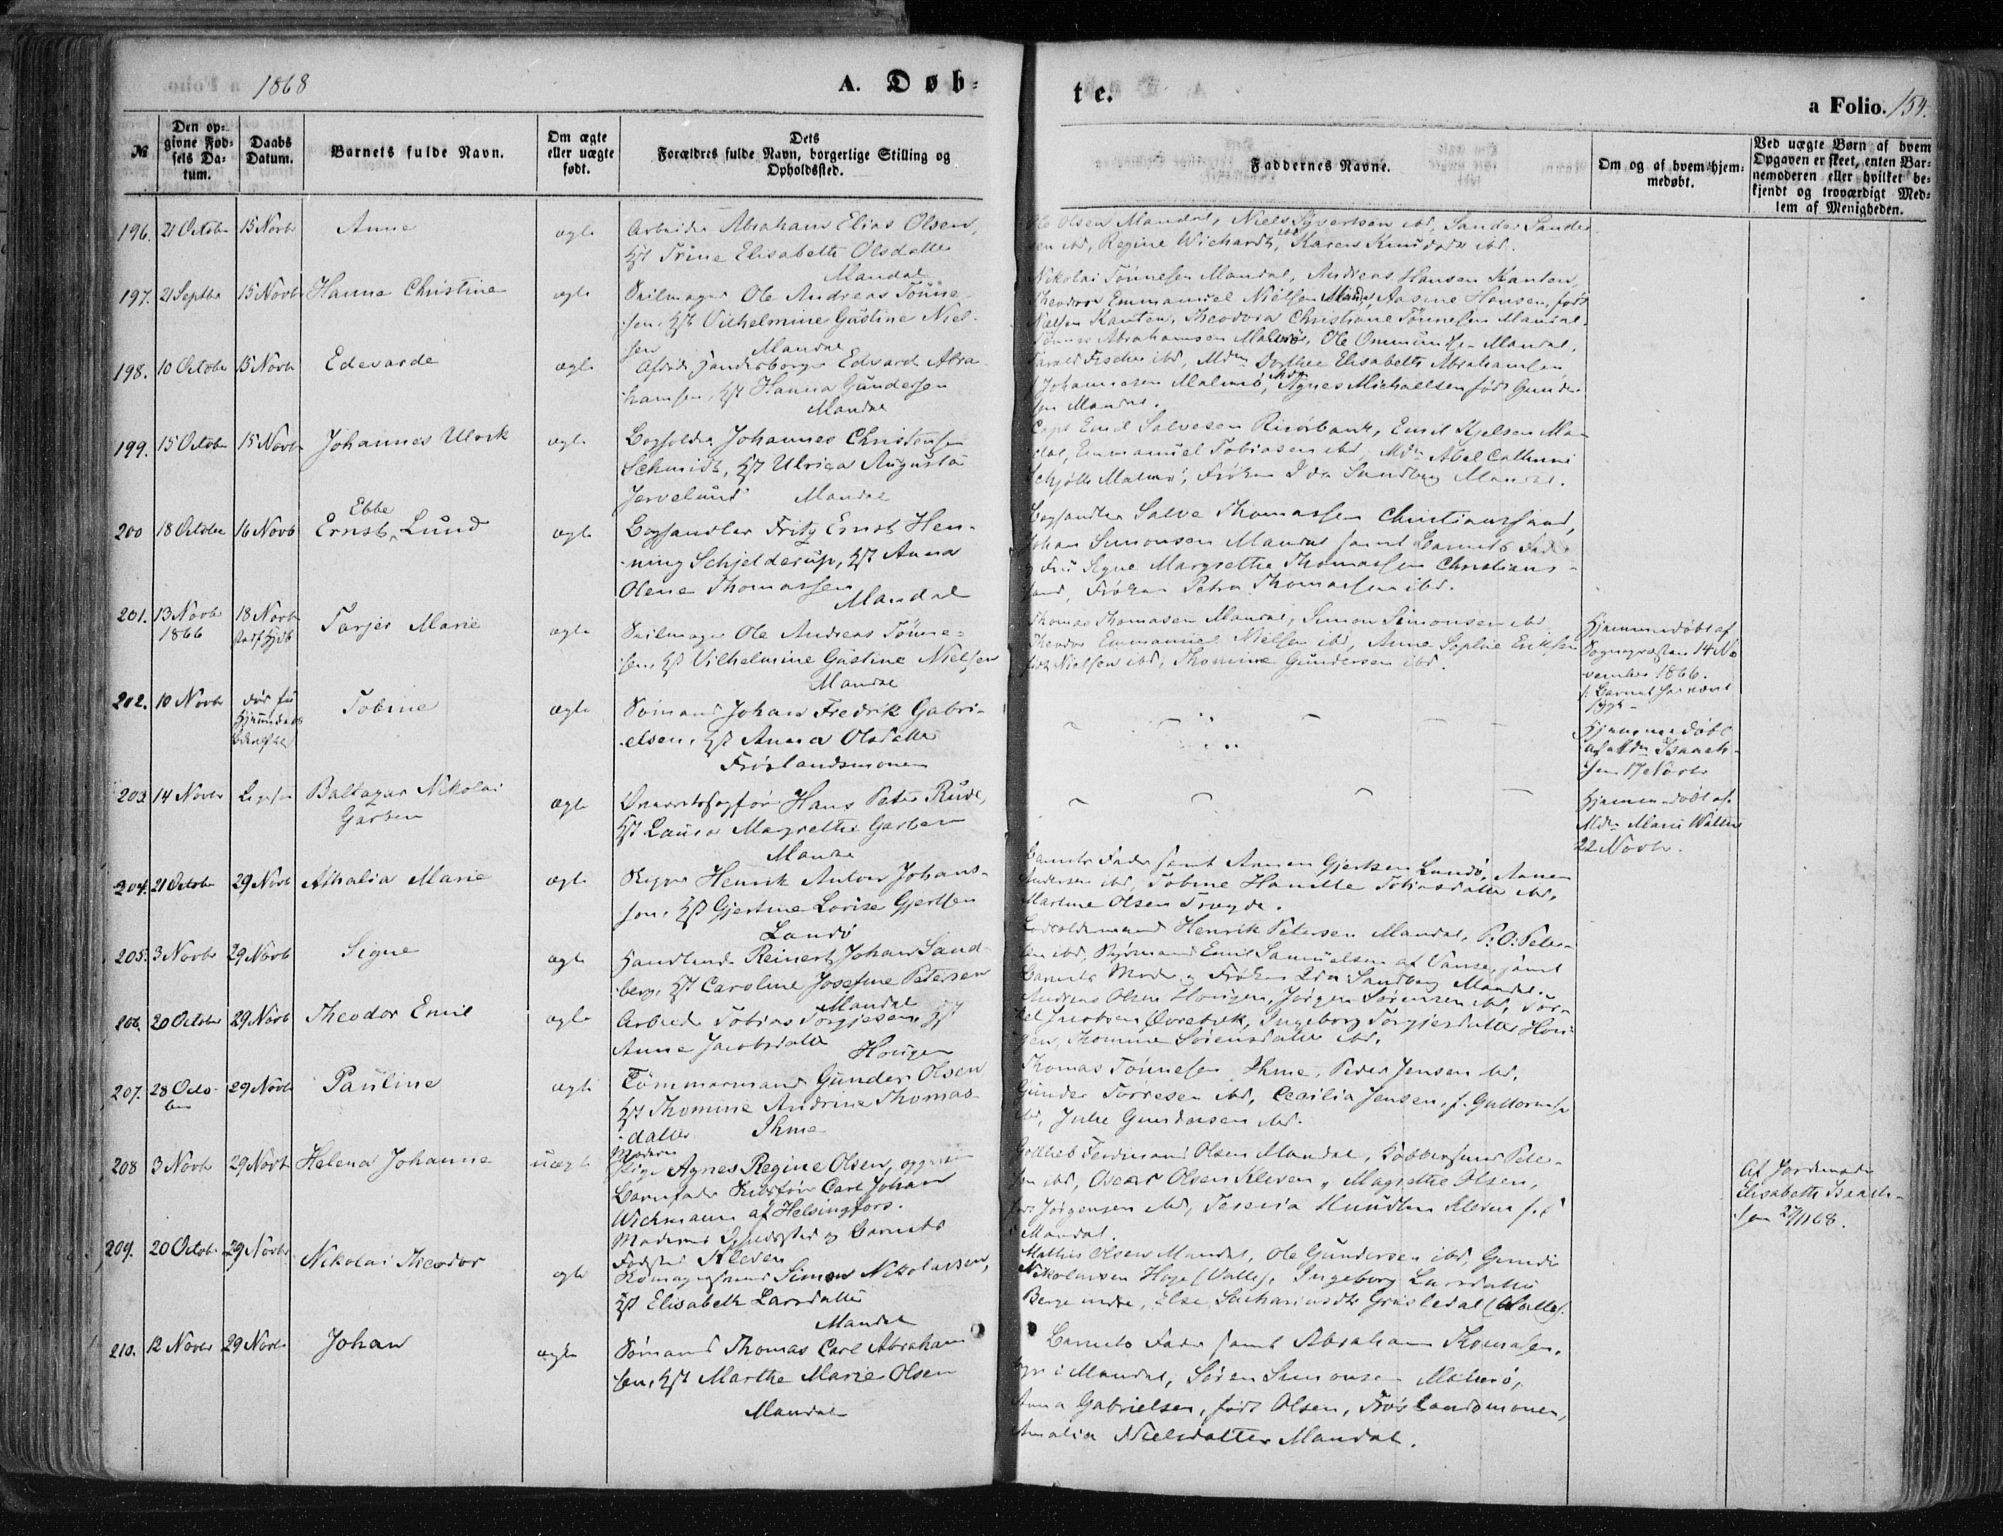 1868
A. Døb-
te.
a Folio. 154.
№
Den op-
givne Fød-
sels Da-
tum.
Daabs
Datum.
Barnets fulde Navn.
Om ægte
eller uægte
født.
Dets
Forældres fulde Navn, borgerlige Stilling og
Opholdssted.
Faddernes Navne.
Om og af hvem hjem-
medøbt.
Ved uægte Børn af hvem
Opgaven er skeet, enten Bar-
nemoderen eller hvilket be-
kjendt og troværdigt Med-
lem af Menigheden.
196. 21 Octobr 15 Novbr Anne ægte Arbeider Abraham Elias Olsen,
Hst Trine Elisabeth Olsdatter
Mandal
Ole Olsen Mandal, Niels Syvertsen ibd, Sander Sander-
sen ibd, Regine Wichardt ibd, Karen Knudsdtr ibd.
197. 21 Septbr 15 Novbr Hanne Christine ægte Seilmager Ole Andreas Tønne-
sen, Hst Vilhelmine Gustine Niel-
sen Mandal
Nikolai Tønnesen Mandal, Andreas Hansen Kanten,
Theodor Emmanuel Nielsen Mandal, Aasine Hansen, født
Nielsen Kanten, Theodora Christiane Tønnesen Mandal.
198. 10 Octobr 15 Novbr Edevarde ægte Afdøde Handelsborger Edvard Abra-
hamsen, Hst Hanna Gundersen
Mandal
Tønnes Abrahamsen Malmø, Ole Ommundsen Mandal,
Harald Fischer ibd, Mdm Dorthee Elisabeth Abrahamsen
f. Johannesen Malmø, Mdm Agnes Michaelsen født Gunder-
sen Mandal.
199. 15 Octobr 15 Novbr Johannes Ulrik ægte Bogholder Johannes Christensen
Schmidt, Hst Ulrica Augusta
Jervelund Mandal
Capt Emil Salvesen Risørbank, Emil Kjelsen Man-
dal, Emmanuel Tobiasen ibd, Mdm Abel Cathrine
Schjøtt Malmø, Frøken Ida Sandberg Mandal.
200 18 Octobr 16 Novb Ernst Ebbe Lund ægte Boghandler Fritz Ernst Hen-
ning Schjelderup, Hst Anna
Olene Thomassen
Mandal
Boghandler Salve Thomassen Christianssand,
Johan Simonsen Mandal samt Barnets Fader
og Fru Signe Margrethe Thomassen Christians-
sand, Frøken Petra Thomassen ibd.
201. 13 Novbr
1866 18 Novbr
Tarjer Marie ægte Seilmager Ole Andreas Tønne-
sen, Hst Vilhelmine Gustine Nielsen
Mandal
Thomas Thomasen Mandal, Simon Simonsen ibd
Theodor Emmanuel Nielsen ibd, Anne Sophie Eriksen
født Nielsen ibd, Thomine Gundersen ibd.
Hjemmedøbt af
Sognepræsten 14 No-
vember 1866.
202. 10 Novbr Tobine ægte Sømand Johan Fredrik Gabri-
elsen, Hst Anna Olsdatter
Frøslandsmonen
Hjemmedøbt
af Mdm Isaach-
sen 17 Novbr
203. 14 Novbr Ligesaa Baltazar Nikolai
Garben ægte Overretssagfører Hans Peter Rude,
Hst Laura Magrethe Garben
Mandal
Hjemmedøbt af
Mdm Marie Walter
22 Novbr.
204. 21 Octobr 29 Novb Athalia Marie ægte Skipper Henrik Anton Johan-
sen, Hst Gjertine Lovise Gjertsen
Landø
Barnets Fader samt Aanen Gjertsen Landø, Aanen
Andersen ibd, Tobine Hanette Tobiasdatter ibd,
Martine Olsen Tregde.
205. 3 Novbr 29 Novb Signe ægte Handlende Reinert Johan Sand-
berg, Hst Caroline Josefine Petersen
Mandal
Lodsoldermand Henrik Petersen Mandal, P: O: Peter-
sen ibd, Styrmand Emil Samuelsen af Vanse samt
Barnets Moder og Frøken Ida Sandberg Mandal.
206. 20 Octobr 29 Novb Theodor Emil ægte Arbeider Tobias Torgjesen, Hst
Anne Jacobsdatter
Hougen
Andreas Olsen Hougen, Jørgen Sørensen ibd, Tor-
kel Jacobsen Øvrebæk, Ingeborg Torgjersdatter Hou-
gen, Thomine Sørensdatter ibd.
207. 28 Octo-
ber 29 Novb Pauline ægte Tømmermand Gunder Olsen
Hst Thomine Andrine Thomas-
datter Ihme
Thomas Tønnesen Ihme, Peder Jensen ibd,
Gunder Tørresen ibd, Cecilia Jensen, f. Guttormsen
ibd, Julie Gundersen ibd.
208 3 Novbr 29 Novb Helena Johanne uægte Moderen
Pige Agnes Regine Olsen, opgiven
Barnefader Skibsfører Carl Johan
Wickmann af Helsingfors.
Moderens Opholdssted og Barnets
Fødested Kleven
Gottlieb Ferdinand Olsen Mandal, Kobbersmed Peter-
sen ibd, Oscar Olsen Kleven, Magrethe Olsen,
født Jørgensen ibd, Tessina Knudtsen Kleven f. i
Mandal.
Af Jordemoder
Elisabeth Isaach-
sen 27/11 68.
209. 20 Octobr 29 Novbr Nikolai Theodor ægte Skomagersvend Simon Nikolaisen,
Hst Elisabeth Larsdatter
Mandal
Mathis Olsen Mandal, Ole Gundersen ibd, Gunder
Nikolaisen Høye (Valle), Ingeborg Larsdatter
Berge indre, Else Sachariasdtr Grisledal (Valle).
210. 12 Novbr 29 Novbr Johan ægte Sømand Thomas Carl Abraham-
sen, Hst Marthe Marie Olsen
Mandal
Barnets Fader samt Abraham Thomasen,
i Mandal, Søren Simonsen Malmø,
Anna Gabrielsen, født Olsen, Frøslandsmonen,
Amalia Nielsdatter Mandal.